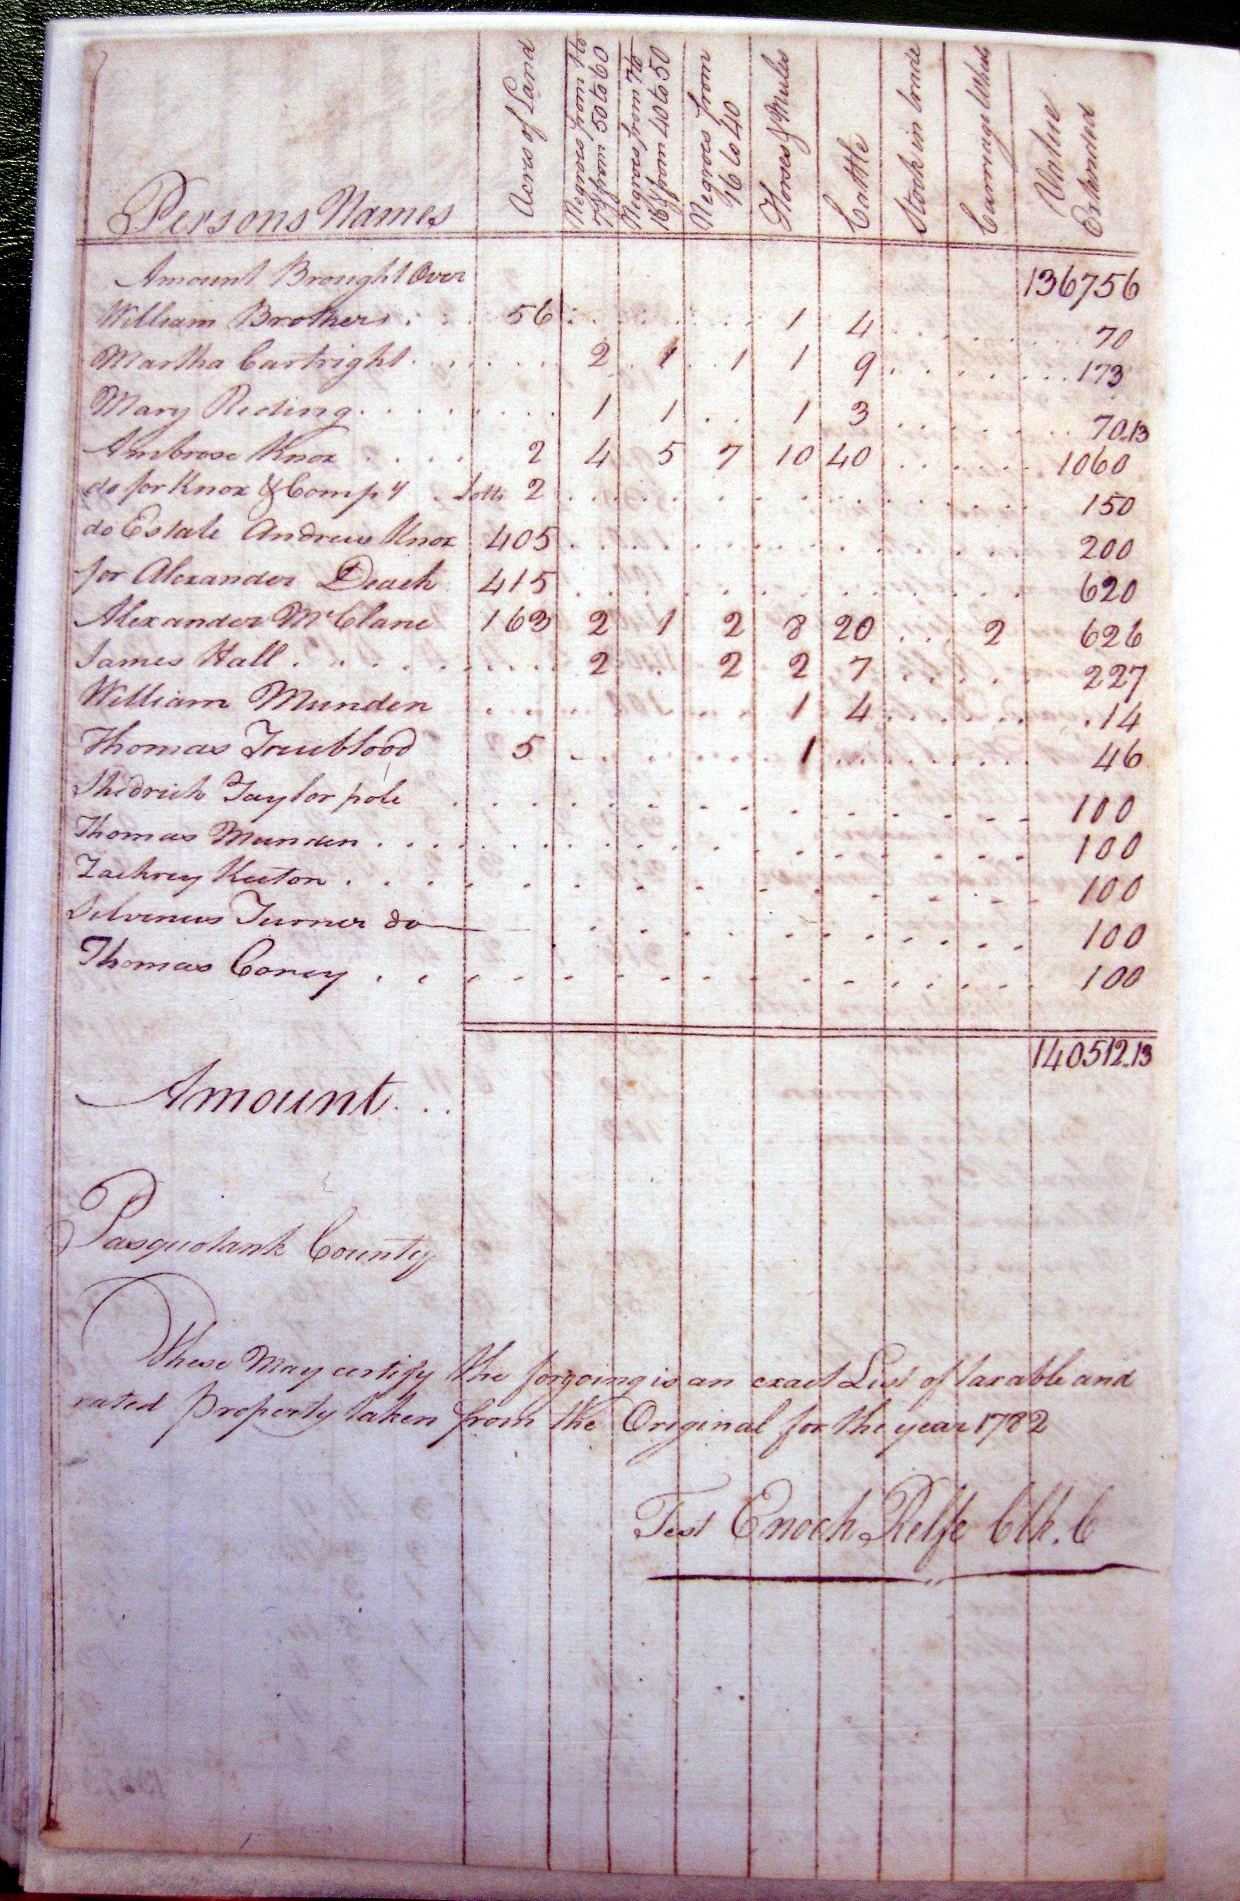 Persons Names | Acres of Land | Negroes from 1 to 7 & from 50 to 60 | Negroes from 7 to 16 & from 40 to 50 | Negroes from 16 to 40 | Horses & Mules | Cattle | Stock in trade | Carriage Wheels | Value
Amount Brought Over 136756
William Brothers 56 1 4 70
Martha Cartright 2 1 1 1 9 173
Mary Reding 1 1 1 3 70.13
Ambrose Knox 2 4 5 7 10 40 1060
do for Knox & Compy Lotts 2 150
do Estate Andrew Knox 405 200
for Alexander 415 620
Alexander McClane 163 2 1 2 8 20 2 626
James Hall 2 2 2 7 227
William Munden 1 4 14
Thomas Trueblood 5 1 46
Shedrich Taylor pole 100
Thomas Munden 100
Zachrey Keeton 100
Silvenus Turner do 100
Thomas Corey 100
140512.13
Amount
Pasquotank County
These May certify the forgoing is an exact List of taxable and
rated Property taken from the Original for the year 1782
Test Enoch Relfe Clk. C